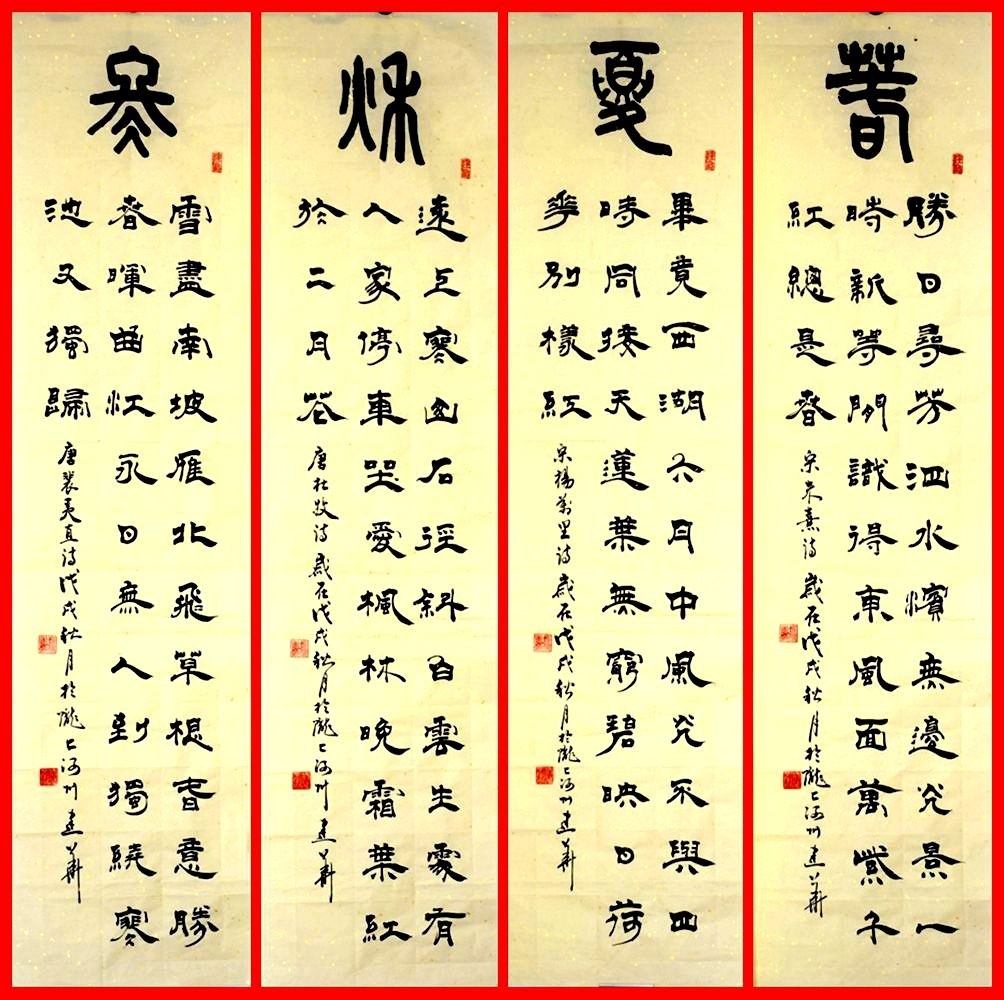 春
勝日尋芳泗水濱無邊光景一
時新等閒識得東風面萬紫千
紅總是春
宋朱熹诗 歲在戊戌秋月於隴上河州建華
夏
畢竟西湖六月中風光不與四
時同接天蓮葉無窮碧映日荷
華別樣紅
宋楊萬里诗 歲在戊戌秋月於隴上河州建華
秌
遠上寒山石徑斜白雲生處有
人家停車坐愛楓林晚霜葉紅
於二月花
唐杜牧诗 歲在戊戌秋月於隴上河州建華
冬
雪盡南坡雁北飛草根春意勝
春暉曲江永日無人到獨繞寒
池又獨歸
唐裴夷直诗戊戌秋月於隴上河州建華